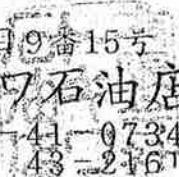 9番15号
ワ石油店
41-0734
43-2161